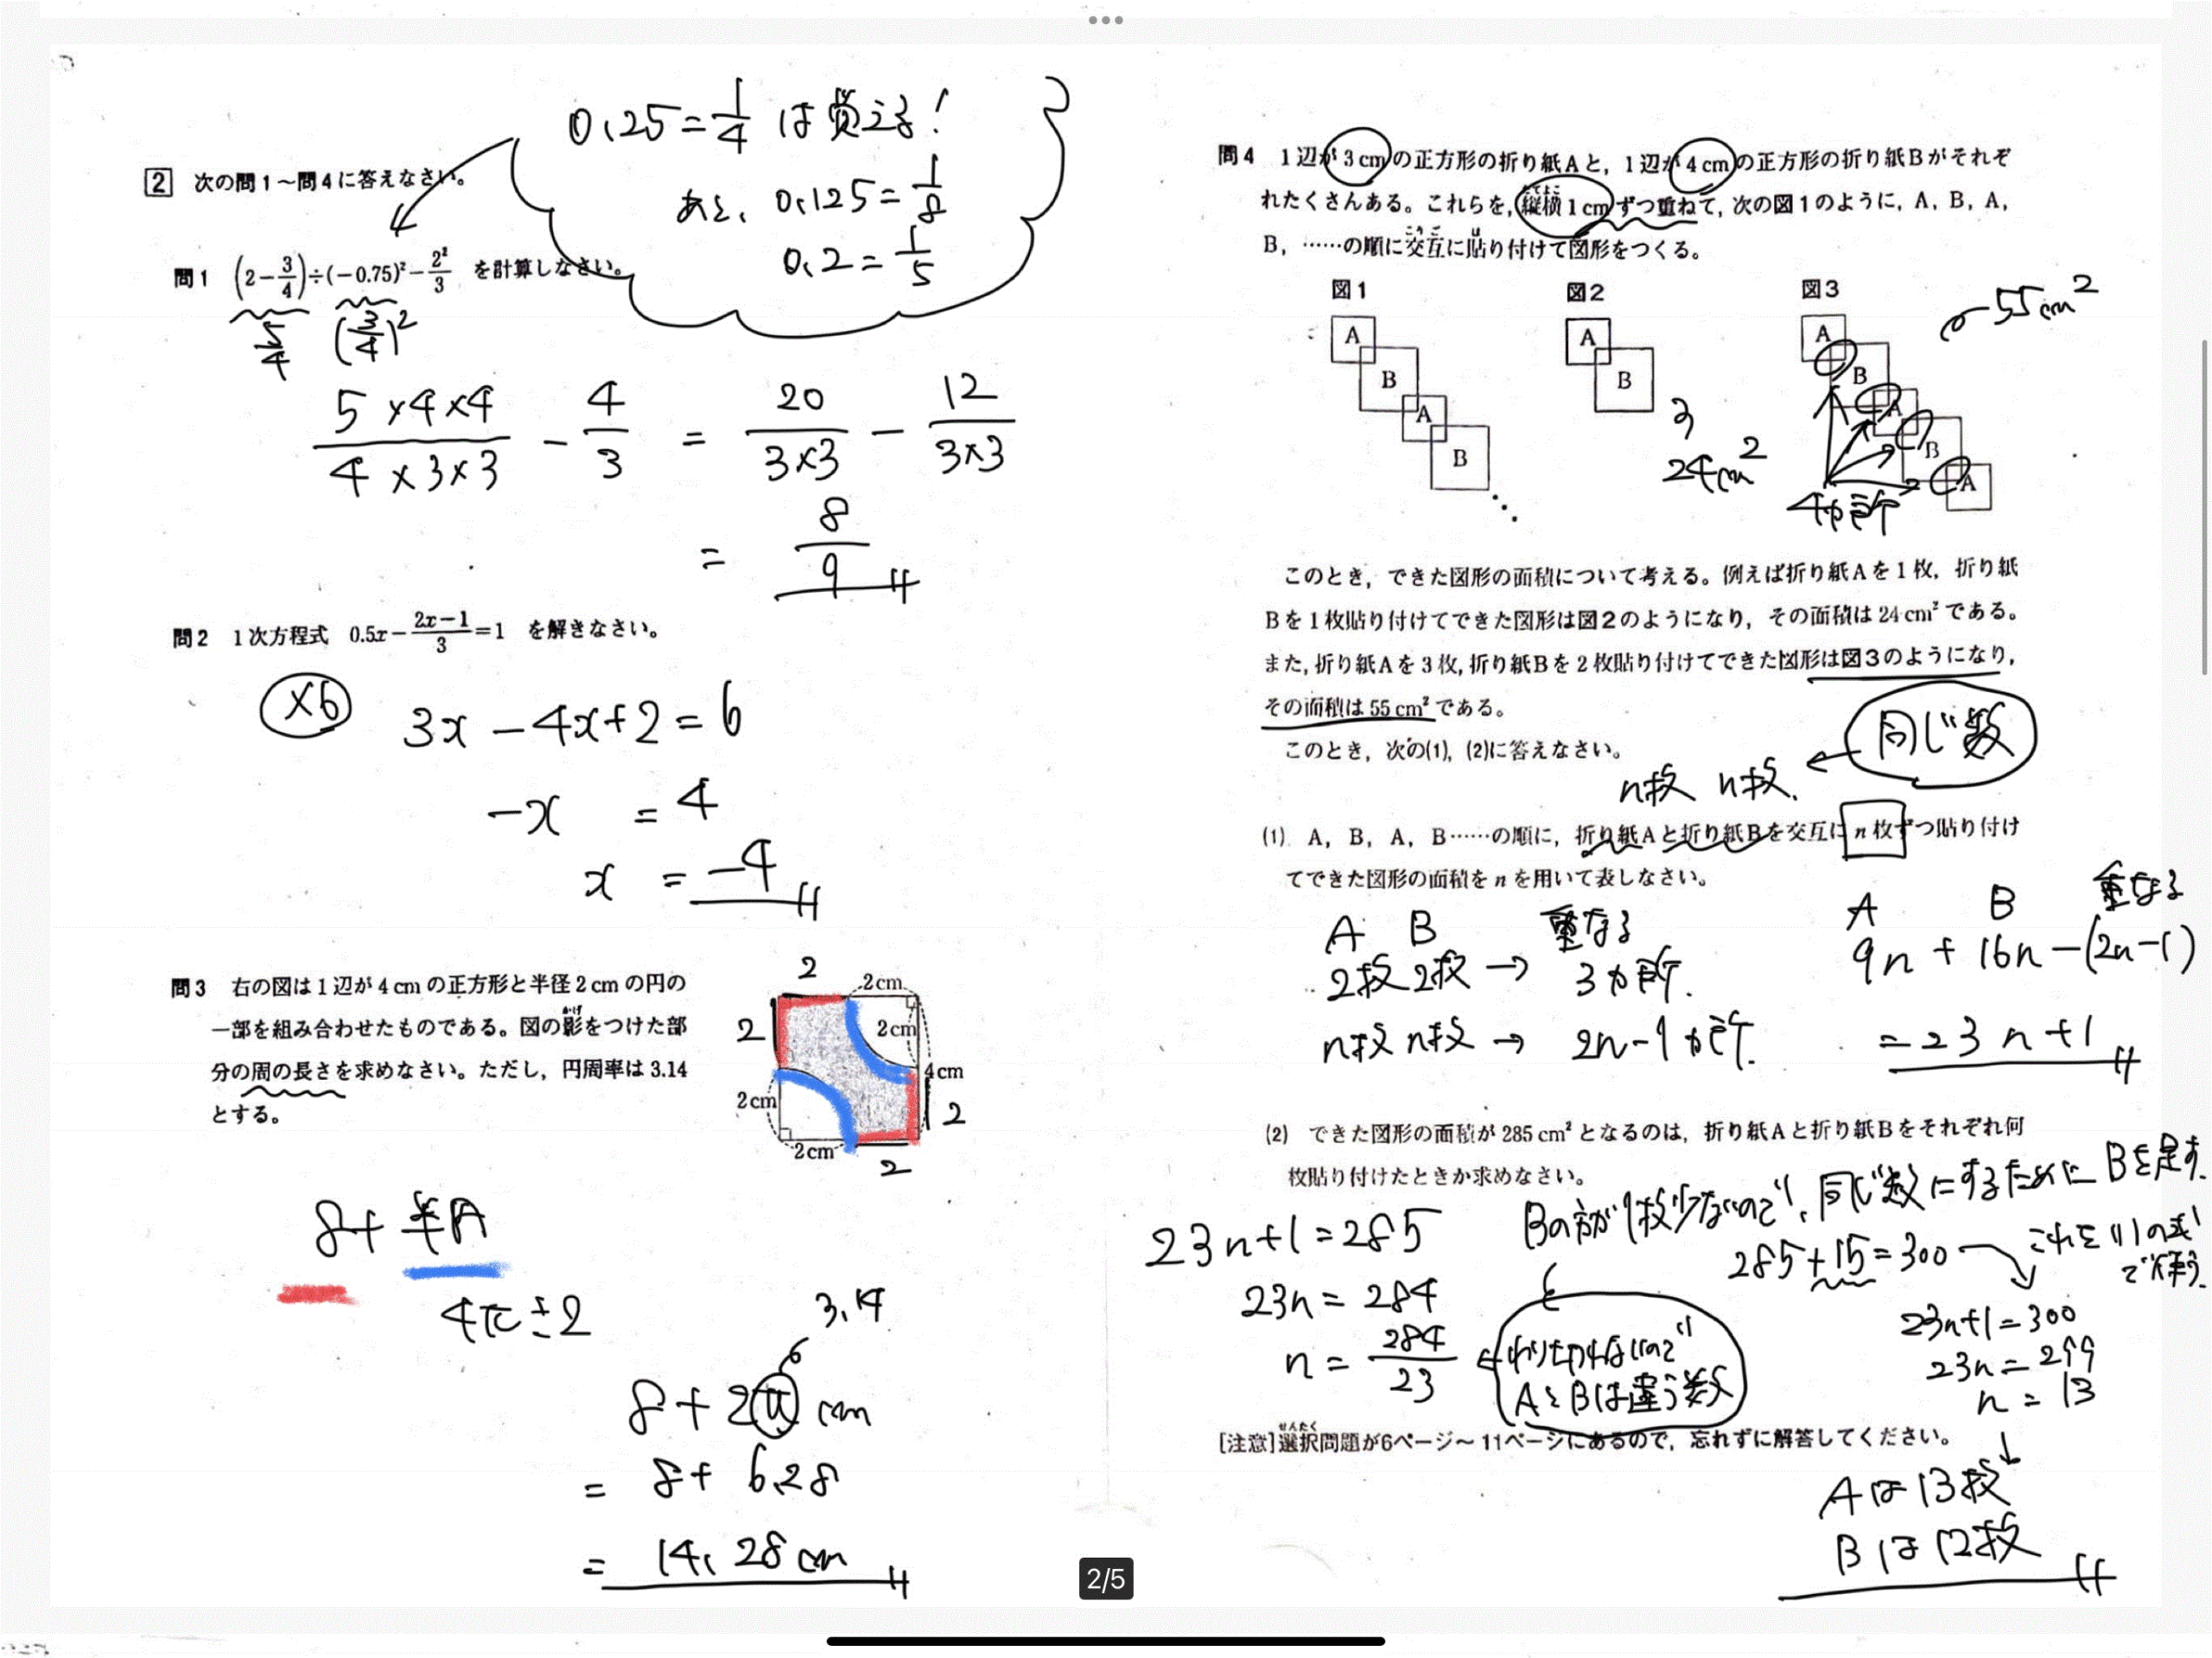 0.25=1/4 は覚える!
あと、0.125=1/8
0.2=1/5
2 次の問1~問4に答えなさい。
問1 (2-3/4)÷(-0.75)²-2²/3 を計算しなさい。
5/4 (3/4)²
5×4×4/4×3×3 - 4/3 = 20/3×3 - 12/3×3
= 8/9
問2 1次方程式 0.5x-2x-1/3=1 を解きなさい。
×6 3x-4x+2=6
-x =4
x =-4
問3 右の図は1辺が4cmの正方形と半径2cmの円の
一部を組み合わせたものである。図の影をつけた部
かげ
分の周の長さを求めなさい。ただし,円周率は3.14
とする。
2
2cm
2
2cm
4cm
2cm
2
2cm
2
8+半円
4π÷2
3.14
8+2π cm
= 8+6.28
= 14.28cm
問4 1辺が3cmの正方形の折り紙Aと,1辺が4cmの正方形の折り紙Bがそれぞ
れたくさんある。これらを,縦横1cmずつ重ねて,次の図1のように,A,B,A,
たてよこ
B,……の順に交互に貼り付けて図形をつくる。
こうご は
図1 図2 図3
A
B
A
B
A
B
24cm²
A
B
A
B
A
4か所
55cm²
このとき,できた図形の面積について考える。例えば折り紙Aを1枚,折り紙
Bを1枚貼り付けてできた図形は図2のようになり,その面積は24cm²である。
また,折り紙Aを3枚,折り紙Bを2枚貼り付けてできた図形は図3のようになり,
その面積は55cm²である。
このとき,次の(1),(2)に答えなさい。
同じ数
n枚 n枚
(1) A,B,A,B……の順に,折り紙Aと折り紙Bを交互にn枚ずつ貼り付け
てできた図形の面積をnを用いて表しなさい。
A B 重なる
2枚 2枚 → 3か所.
n枚 n枚 → 2n-1か所.
A B 重なる
9n+16n-(2n-1)
=23n+1
(2) できた図形の面積が285cm²となるのは,折り紙Aと折り紙Bをそれぞれ何
枚貼り付けたときか求めなさい。
23n+1=285
23n=284
n=284/23
わりきれないので
AとBは違う数
Bの方が1枚少ないので、同じ数にするためにBを足す.
285+15=300
これを(1)の式
で使う.
23n+1=300
23n=299
n=13
Aは13枚
Bは12枚
[注意]選択問題が6ページ~11ページにあるので,忘れずに解答してください。
せんたく
2/5